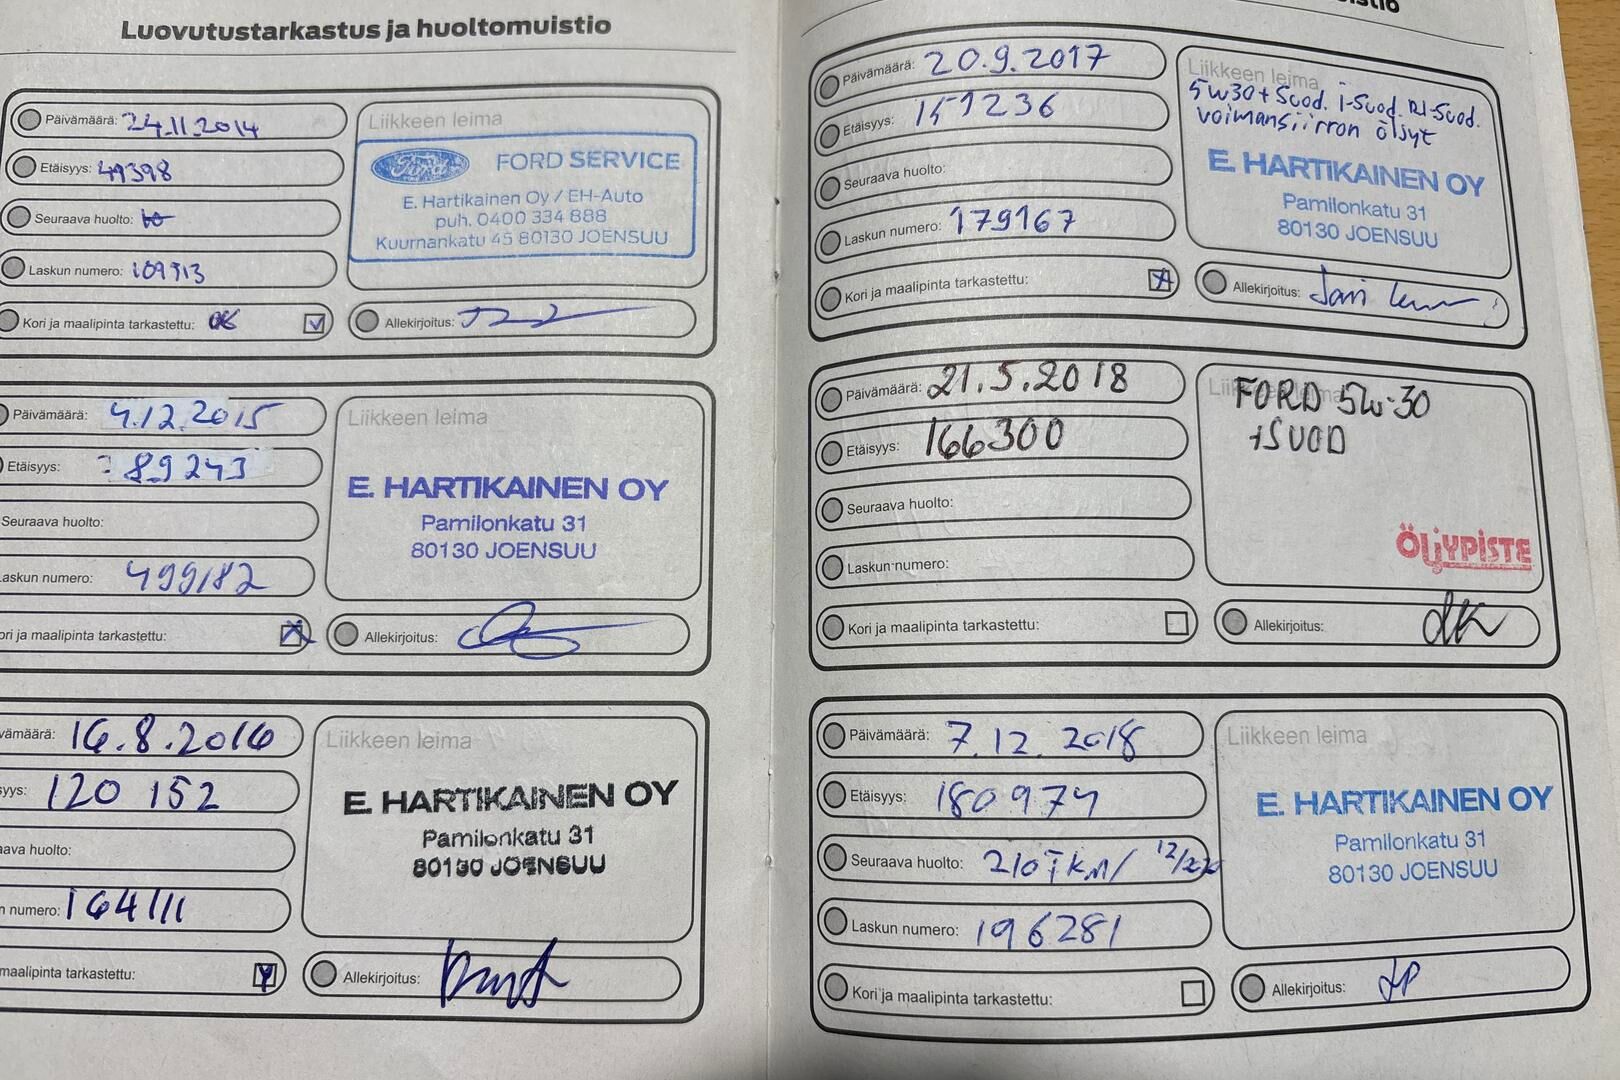 Luovutustarkastus ja huoltomuistio
Päivämäärä: 24.11.2014
Etäisyys: 49398
Seuraava huolto:
Laskun numero: 109913
Kori ja maalipinta tarkastettu: OK
Liikkeen leima
Ford FORD SERVICE
E. Hartikainen Oy / EH-Auto
puh. 0400 334 888
Kuurnankatu 45 80130 JOENSUU
Allekirjoitus:
Päivämäärä: 4.12.2015
Etäisyys: 89243
Seuraava huolto:
askun numero: 499182
ori ja maalipinta tarkastettu:
Liikkeen leima
E. HARTIKAINEN OY
Pamilonkatu 31
80130 JOENSUU
Allekirjoitus:
vämäärä: 16.8.2016
syys: 120 152
aava huolto:
n numero: 164111
maalipinta tarkastettu:
Liikkeen leima
E. HARTIKAINEN OY
Pamilonkatu 31
80130 JOENSUU
Allekirjoitus:
Päivämäärä: 20.9.2017
Etäisyys: 151236
Seuraava huolto:
Laskun numero: 179167
Kori ja maalipinta tarkastettu:
Liikkeen leima
5w30+Suod. i-Suod. RI-Suod.
voimansiirron öljyt
E. HARTIKAINEN OY
Pamilonkatu 31
80130 JOENSUU
Allekirjoitus: Jari
Päivämäärä: 21.5.2018
Etäisyys: 166300
Seuraava huolto:
Laskun numero:
Kori ja maalipinta tarkastettu:
Liikkeen leima
FORD 5W-30
+SUOD
ÖLJYPISTE
Allekirjoitus:
Päivämäärä: 7.12.2018
Etäisyys: 180974
Seuraava huolto: 210 Tkm/ 12/2020
Laskun numero: 196281
Kori ja maalipinta tarkastettu:
Liikkeen leima
E. HARTIKAINEN OY
Pamilonkatu 31
80130 JOENSUU
Allekirjoitus: